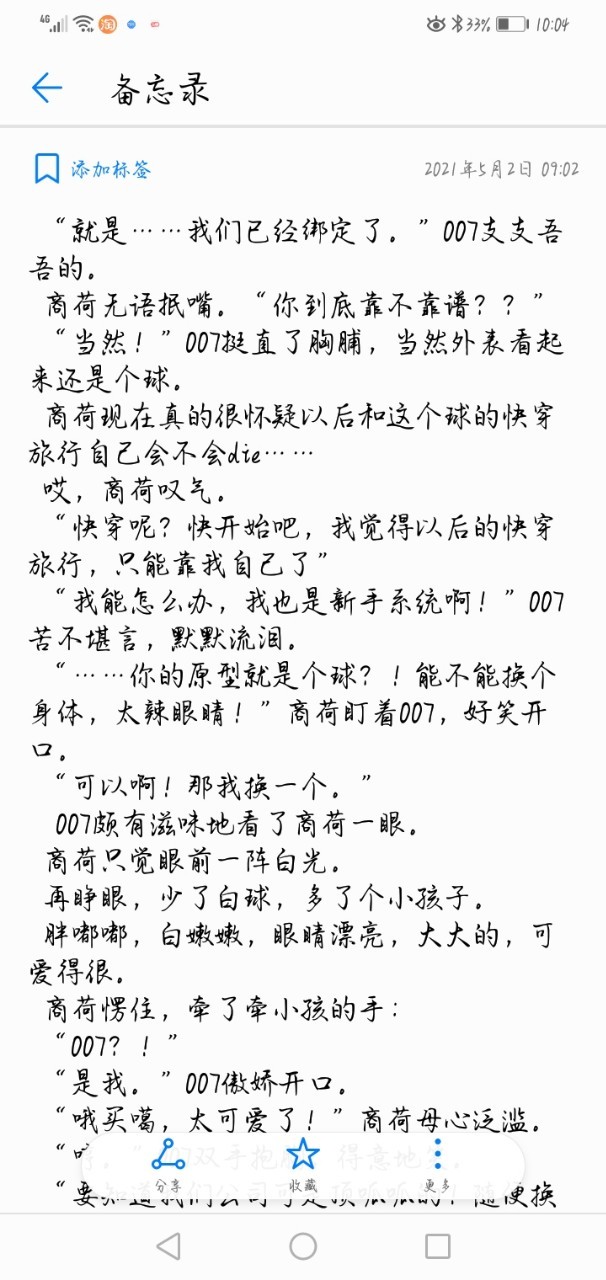 4G 淘 33% 10:04
备忘录
添加标签 2021年5月2日 09:02
“就是……我们已经绑定了。”007支支吾
吾的.
商荷无语抿嘴.“你到底靠不靠谱？？”
“当然！”007挺直了胸脯，当然外表看起
来还是个球.
商荷现在真的很怀疑以后和这个球的快穿
旅行自己会不会die……
哎，商荷叹气.
“快穿呢？快开始吧，我觉得以后的快穿
旅行，只能靠我自己了”
“我能怎么办，我也是新手系统啊！”007
苦不堪言，默默流泪.
“……你的原型就是个球？！能不能换个
身体，太辣眼睛！”商荷盯着007，好笑开
口.
“可以啊！那我换一个.”
007颇有滋味地看了商荷一眼.
商荷只觉眼前一阵白光.
再睁眼，少了白球，多了个小孩子.
胖嘟嘟，白嫩嫩，眼睛漂亮，大大的，可
爱得很.
商荷愣住，牵了牵小孩的手：
“007？！”
“是我.”007傲娇开口.
“哦买噶，太可爱了！”商荷母心泛滥.
007双手抱 得意地
“要知道我们公司可是顶呱呱的！随便换
分享 收藏 更多